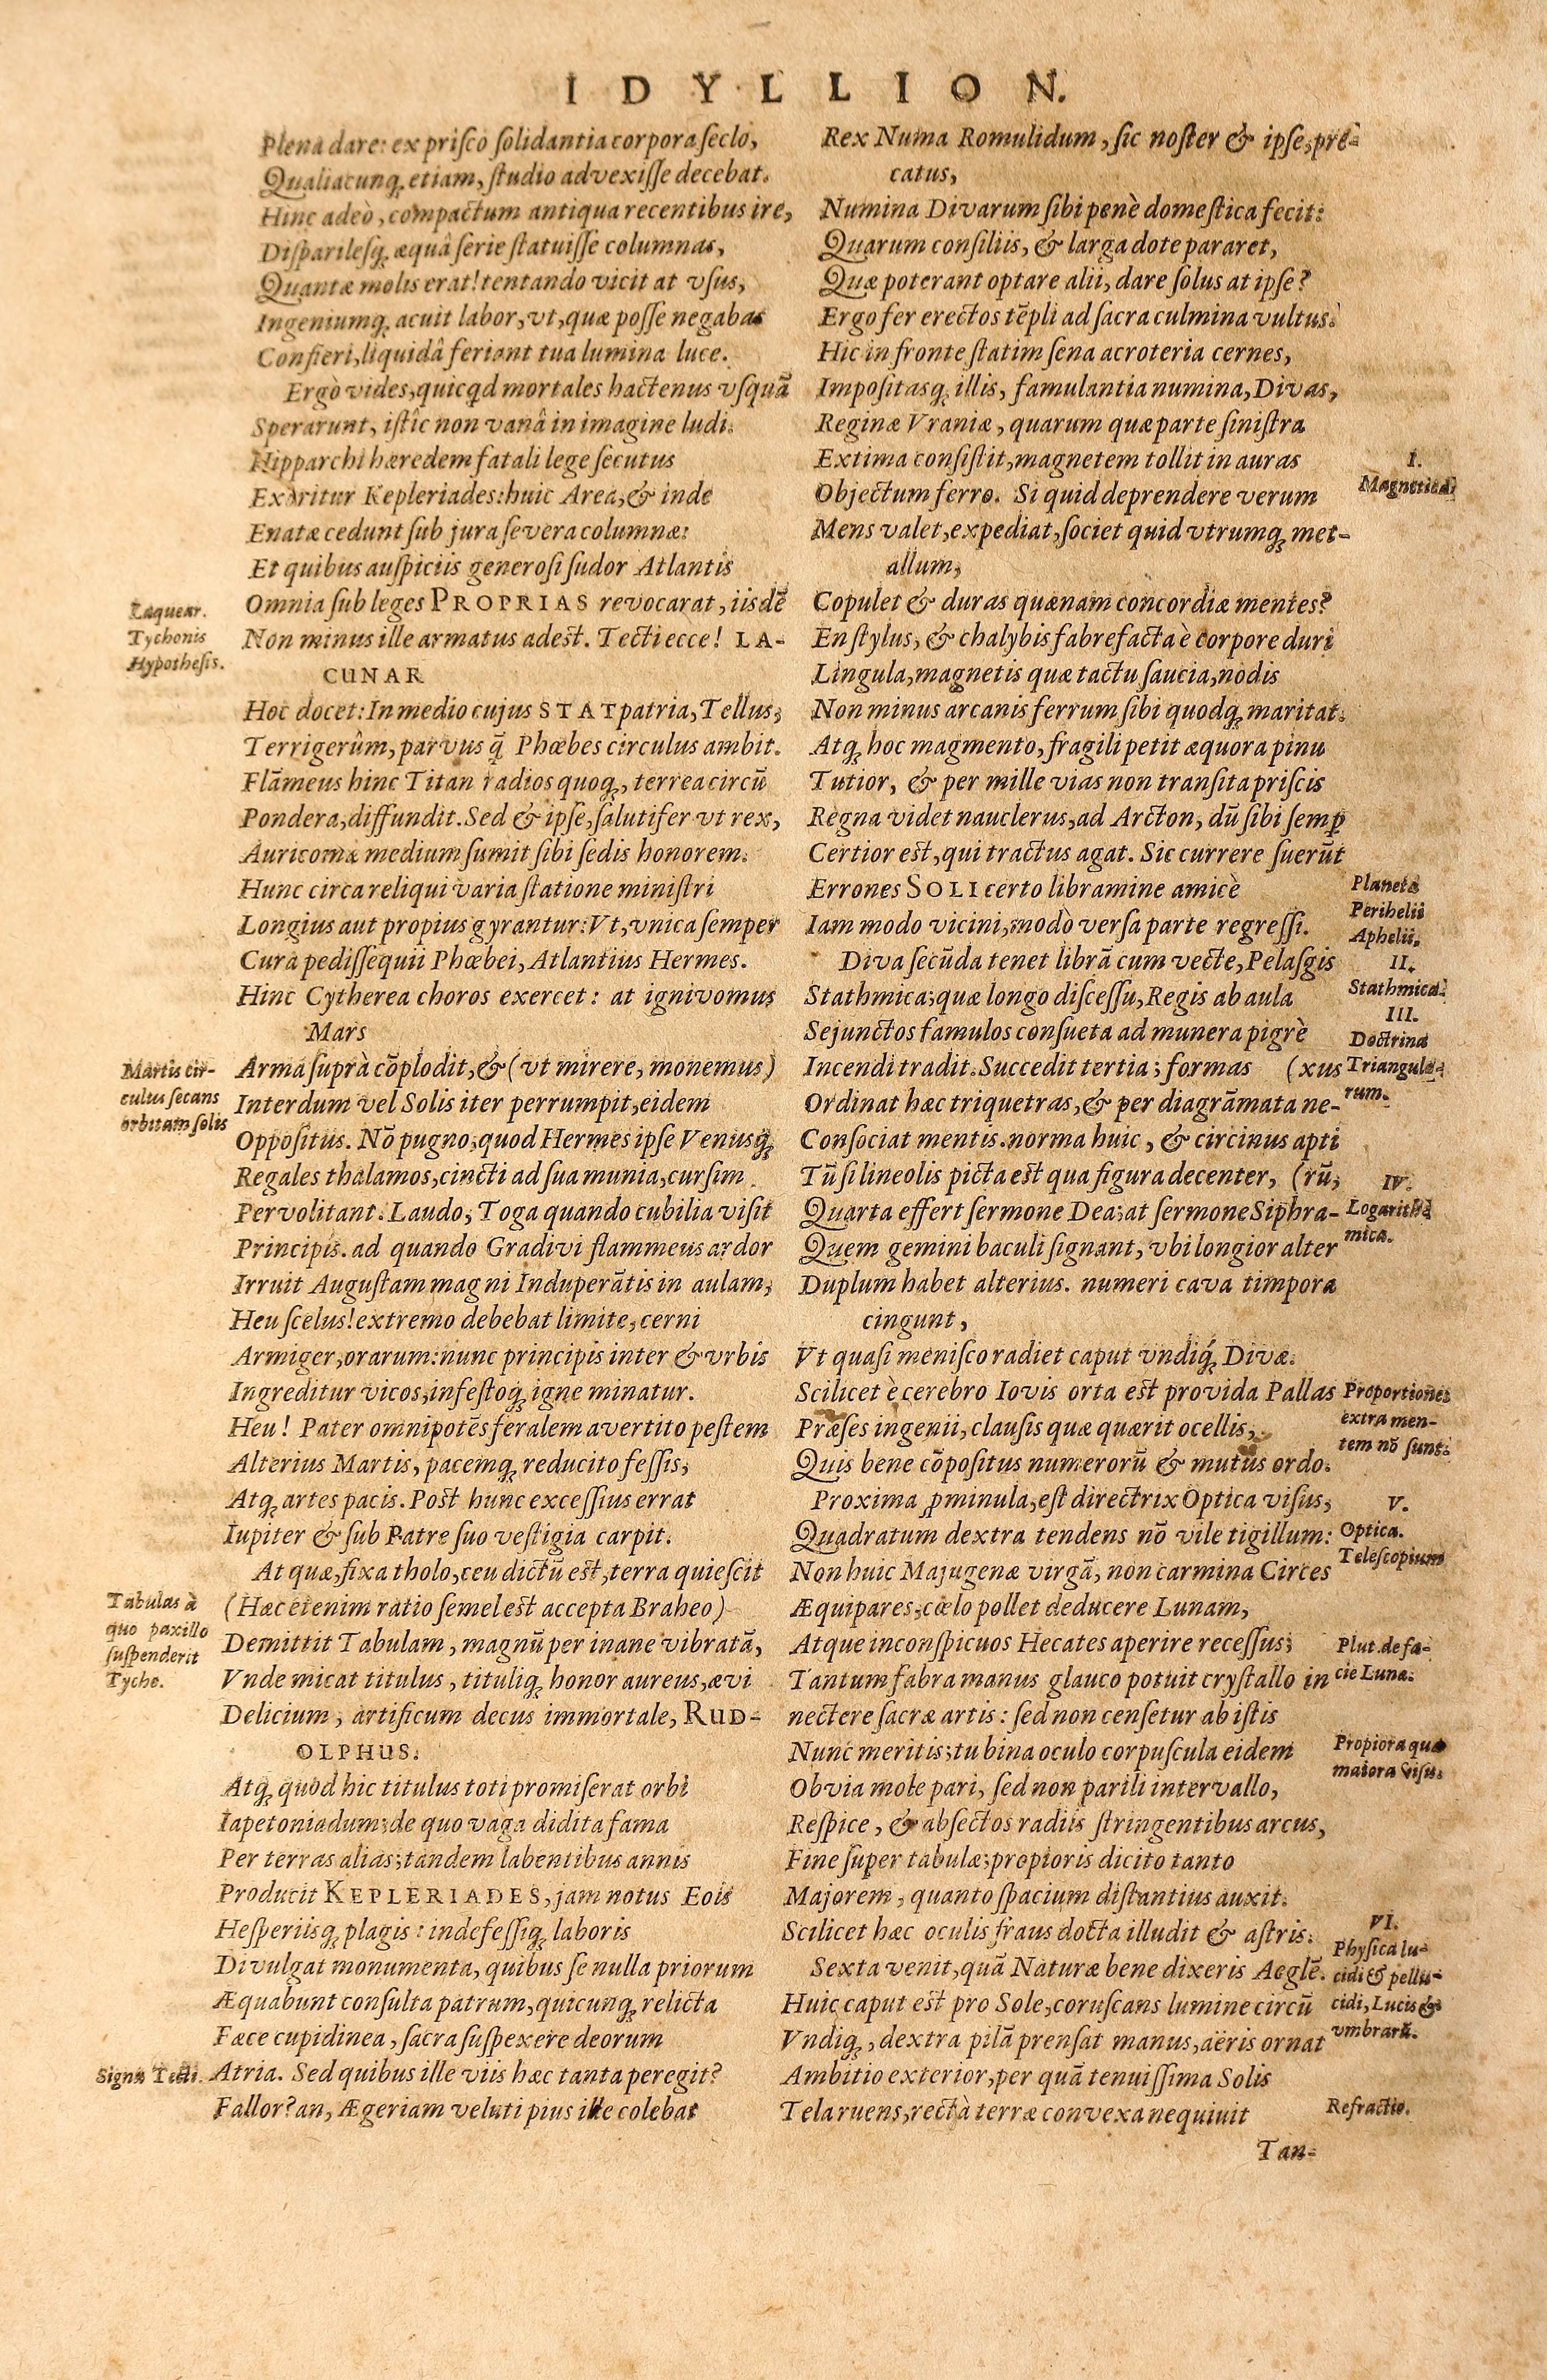 IDYLLION.
Plena dare: ex priſco ſolidantia corpora ſeclo,
Qualiacunq; etiam, ſtudio advexiſſe decebat.
Hinc adeò, compactum antiqua recentibus ire,
Diſparileſq; æquâ ſerie ſtatuiſſe columnas,
Quantæ molis erat! tentando vicit at vſus,
Ingeniumq; acuit labor, vt, quæ poſſe negabas
Confieri, liquidâ feriant tua lumina luce.
Ergò vides, quicqd mortales hactenus vſquã
Sperarunt, iſtîc non vanâ in imagine ludi.
Hipparchi hæredem fatali lege ſecutus
Exoritur Kepleriades: huic Area, & inde
Enatæ cedunt ſub jura ſevera columnæ:
Et quibus auſpiciis generoſi ſudor Atlantis
Laquear.
Tychonis
Hypotheſis.
Omnia ſub leges PROPRIAS revocarat, iisdẽ
Non minus ille armatus adest. Tecti ecce! LA-
CUNAR
Hoc docet: In medio cujus STAT patria, Tellus,
Terrigerûm, parvus q̃ Phœbes circulus ambit.
Flãmeus hinc Titan radios quoq;, terrea circũ
Pondera, diffundit. Sed & ipſe, ſalutifer vt rex,
Auricomæ medium ſumit ſibi ſedis honorem.
Hunc circa reliqui varia ſtatione miniſtri
Longius aut propius gyrantur: Vt, vnica ſemper
Cura pediſſequii Phœbei, Atlantius Hermes.
Hinc Cytherea choros exercet: at ignivomus
Mars
Martis cir-
culus ſecans
orbitam ſolis
Arma ſuprà cõplodit, & (vt mirere, monemus)
Interdum vel Solis iter perrumpit, eidem
Oppoſitus. Nõ pugno, quod Hermes ipſe Venusq;
Regales thalamos, cincti ad ſua munia, curſim
Pervolitant. Laudo, Toga quando cubilia viſit
Principis. ad quando Gradivi flammeus ardor
Irruit Auguſtam magni Induperãtis in aulam,
Heu ſcelus! extremo debebat limite, cerni
Armiger, orarum: nunc principis inter & vrbis
Ingreditur vicos, infeſtoq; igne minatur.
Heu! Pater omnipotẽs feralem avertito peſtem
Alterius Martis, pacemq; reducito feſſis,
Atq; artes pacis. Post hunc exceſſius errat
Iupiter & ſub Patre ſuo veſtigia carpit.
At quæ, fixa tholo, ceu dictũ est, terra quieſcit
Tabulas à
quo paxillo
ſuſpenderit
Tycho.
(Hæc etenim ratio ſemel est accepta Braheo)
Demittit Tabulam, magnũ per inane vibratã,
Vnde micat titulus, tituliq; honor aureus, ævi
Delicium, artificum decus immortale, RUD-
OLPHUS.
Atq; quod hic titulus toti promiſerat orbi
Iapetoniadum; de quo vaga didita fama
Per terras alias; tandem labentibus annis
Producit KEPLERIADES, jam notus Eois
Heſperiisq; plagis: indefeſſiq; laboris
Divulgat monumenta, quibus ſe nulla priorum
Æquabunt conſulta patrum, quicunq; relicta
Fæce cupidinea, ſacra ſuſpexere deorum
Signa Tecti.
Atria. Sed quibus ille viis hæc tanta peregit?
Fallor? an, Ægeriam veluti pius ille colebat
Rex Numa Romulidum, ſic noſter & ipſe, pre-
catus,
Numina Divarum ſibi penè domeſtica fecit:
Quarum conſiliis, & larga dote pararet,
Quæ poterant optare alii, dare ſolus at ipſe?
Ergo fer erectos tẽpli ad ſacra culmina vultus.
Hic in fronte ſtatim ſena acroteria cernes,
Impoſitasq; illis, famulantia numina, Divas,
Reginæ Vraniæ, quarum quæ parte ſiniſtra
I.
Magnetica.
Extima conſiſtit, magnetem tollit in auras
Objectum ferro. Si quid deprendere verum
Mens valet, expediat, ſociet quid vtrumq; met-
allum,
Copulet & duras quænam concordiæ mentes?
En ſtylus, & chalybis fabrefacta è corpore duri
Lingula, magnetis quæ tactu ſaucia, nodis
Non minus arcanis ferrum ſibi quodq; maritat.
Atq; hoc magmento, fragili petit æquora pinu
Tutior, & per mille vias non tranſita priſcis
Regna videt nauclerus, ad Arcton, dũ ſibi ſemꝑ
Certior est, qui tractus agat. Sic currere ſuerũt
Planetæ
Perihelii
Aphelii.
Errones SOLI certo libramine amicè
Iam modo vicini, modò verſa parte regreſſi.
II.
Stathmica.
Diva ſecũda tenet librã cum vecte, Pelaſgis
Stathmica; quæ longo diſceſſu, Regis ab aula
Sejunctos famulos conſueta ad munera pigrè
III.
Doctrina
Triangulo-
rum.
Incendi tradit. Succedit tertia; formas (xus
Ordinat hæc triquetras, & per diagrãmata ne-
Conſociat mentis. norma huic, & circinus apti
Tũ ſi lineolis picta est qua figura decenter, (rũ,
IV.
Logarith-
mica.
Quarta effert ſermone Dea; at ſermone Siphra-
Quem gemini baculi ſignant, vbi longior alter
Duplum habet alterius. numeri cava timpora
cingunt,
Vt quaſi meniſco radiet caput vndiq́; Divæ.
Proportiones
extra men-
tem nõ ſunt.
Scilicet è cerebro Iovis orta est provida Pallas
Præſes ingenii, clauſis quæ quærit ocellis,
Quis bene cõpoſitus numerorũ & mutũs ordo.
V.
Optica.
Teleſcopium
Proxima ꝓminula, eſt directrix Optica viſus,
Quadratum dextra tendens nõ vile tigillum:
Non huic Majugenæ virgã, non carmina Circes
Æquipares; cœlo pollet deducere Lunam,
Plut. de fa-
cie Lunæ.
Atque inconſpicuos Hecates aperire receſſus;
Tantum fabra manus glauco potuit cryſtallo in
nectere ſacræ artis: ſed non cenſetur ab iſtis
Propiora quæ
maiora viſu.
Nunc meritis; tu bina oculo corpuſcula eidem
Obvia mole pari, ſed non parili intervallo,
Reſpice, & abſectos radiis ſtringentibus arcus,
Fine ſuper tabulæ; propioris dicito tanto
Majorem, quanto ſpacium diſtantius auxit.
Scilicet hæc oculis fraus docta illudit & aſtris.
VI.
Phyſica lu-
cidi & pellu-
cidi, Lucis &
vmbrarũ.
Sexta venit, quã Naturæ bene dixeris Aeglẽ.
Huic caput est pro Sole, coruſcans lumine circũ
Vndiq;, dextra pilã prenſat manus, aëris ornat
Ambitio exterior, per quã tenuiſſima Solis
Refractio.
Tela ruens, rectà terræ convexa nequiuit
Tan-